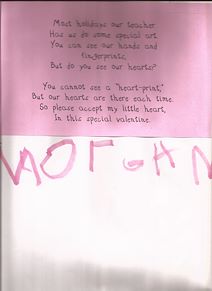 Most holidays our teacher
Has us do some special art
You can see our hands and
fingerprints,
But do you see our hearts?
You cannot see a "heart-print,"
But our hearts are there each time.
So please accept my little heart,
In this special valentine.
MORGAN